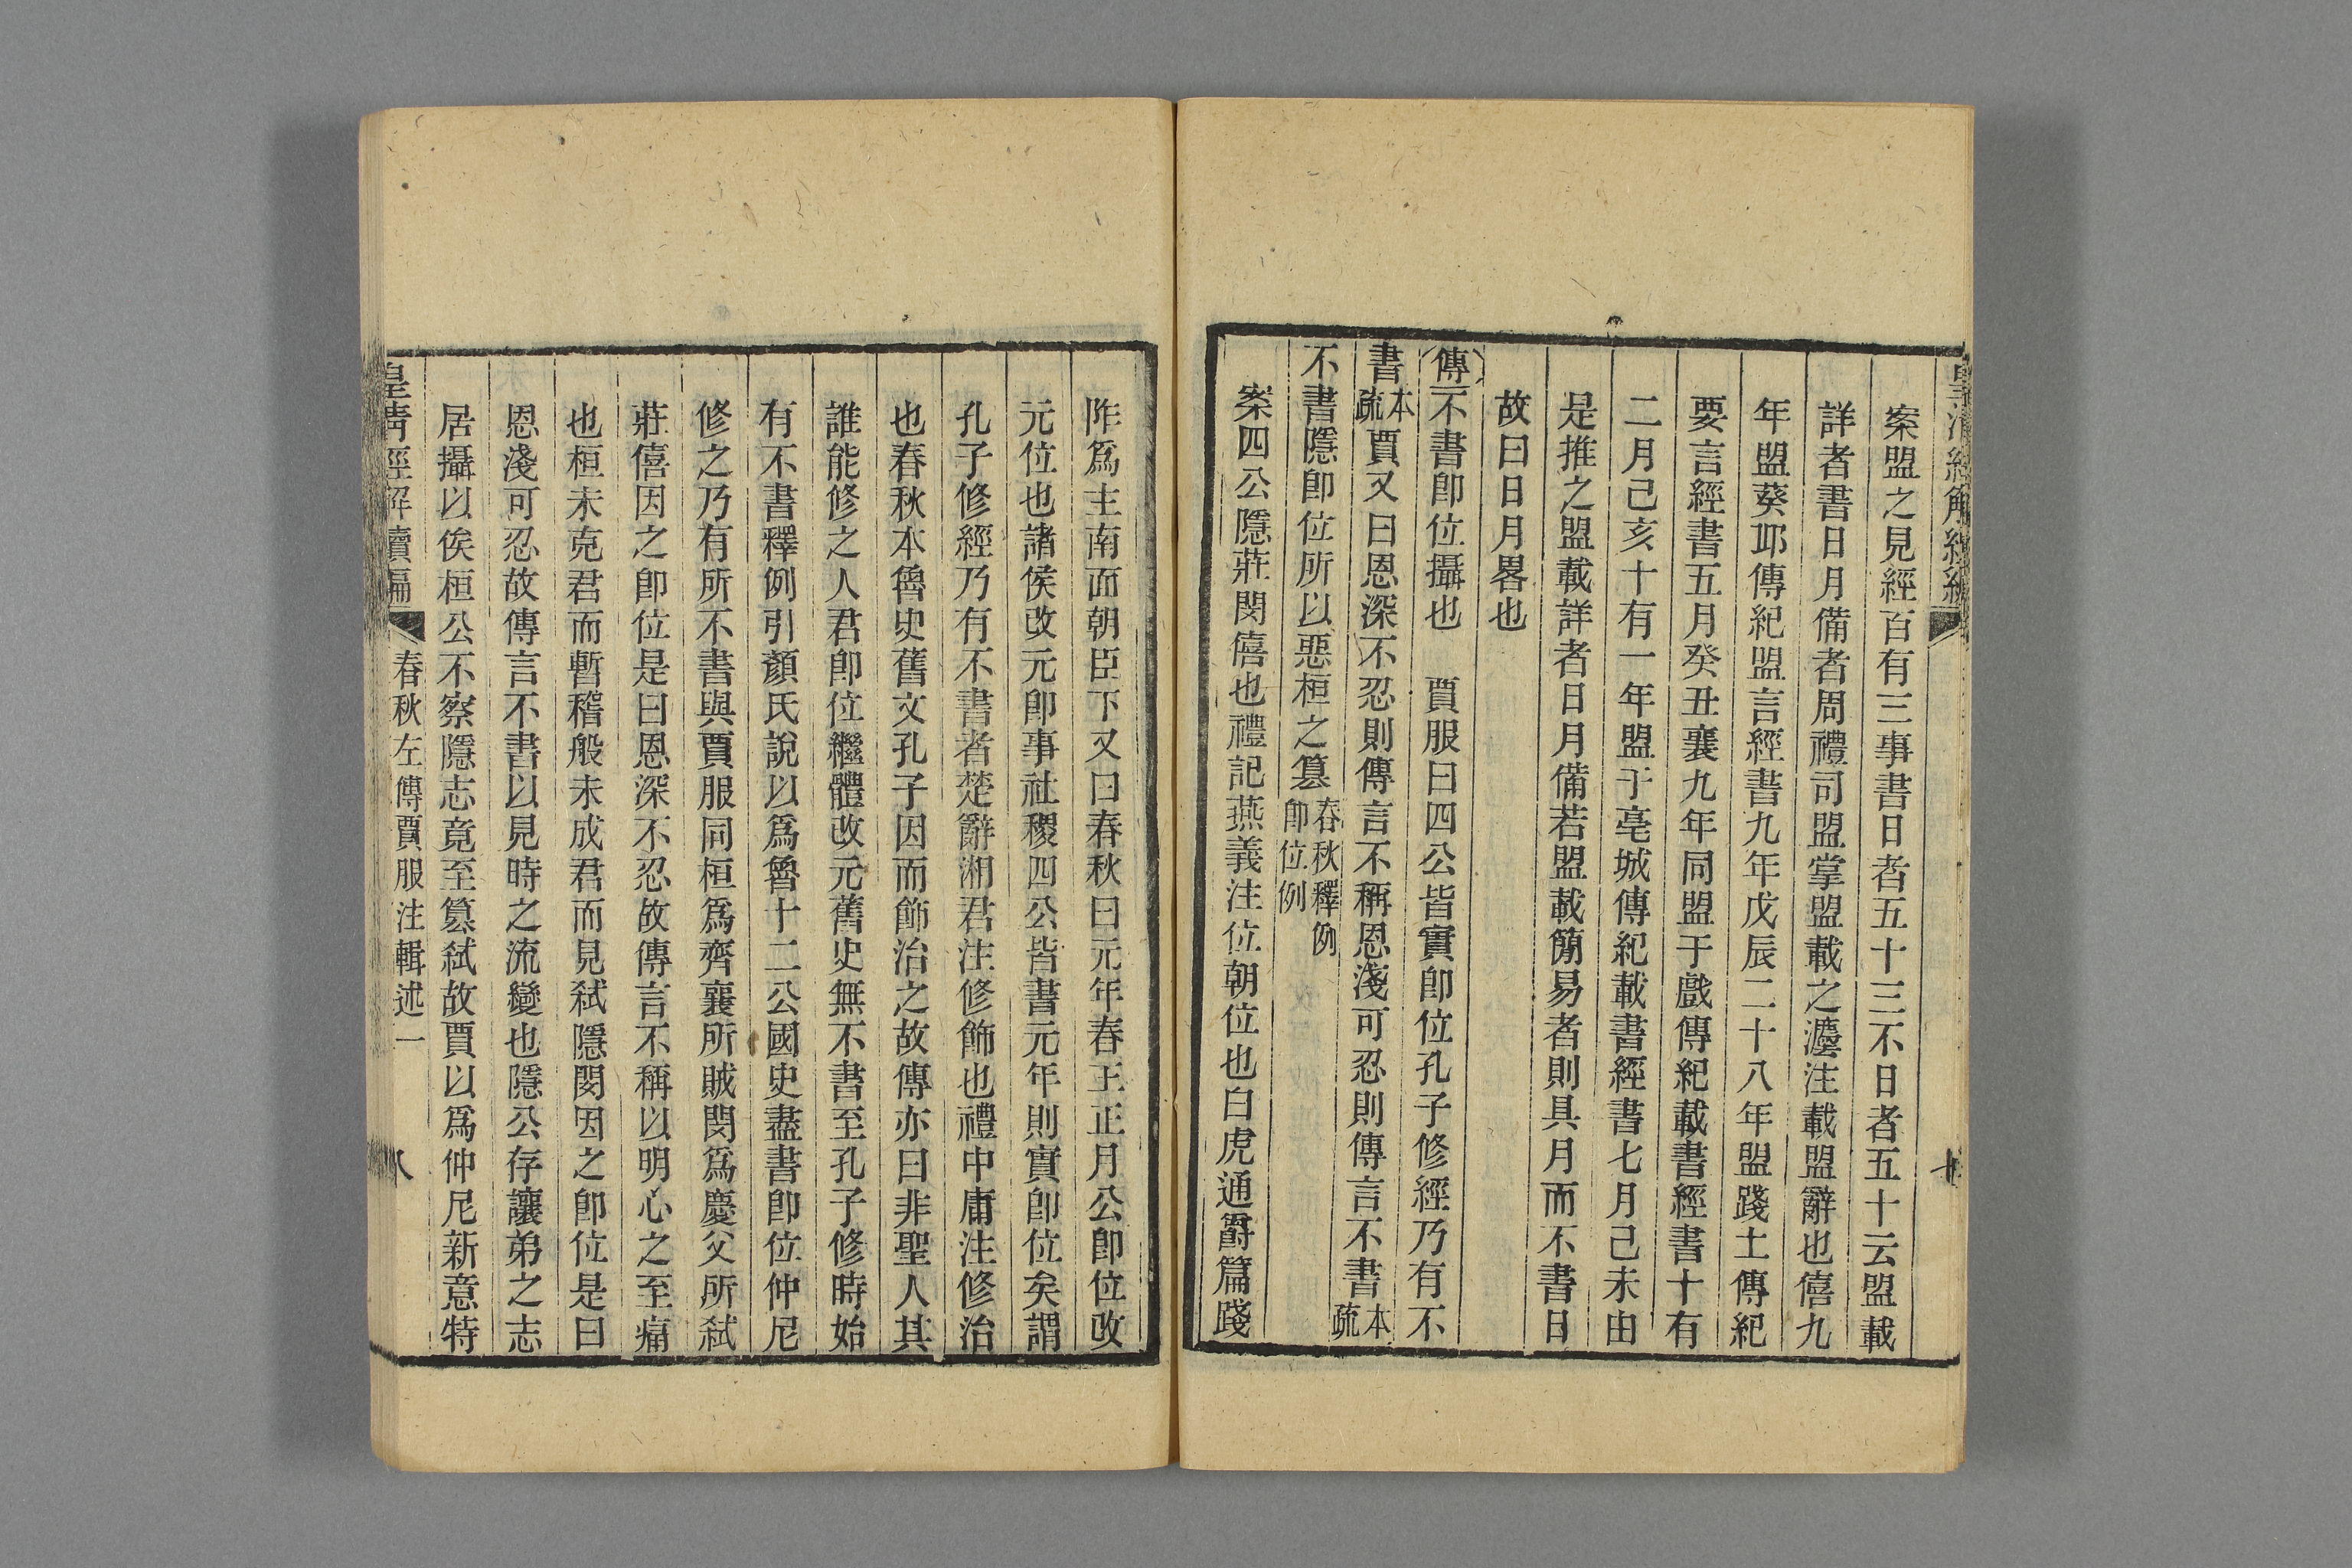 案盟之見經百有三事書日者五十三不日者五十云盟載
詳者書日月備者周禮司盟掌盟載之灋注載盟辭也僖九
年盟葵邱傳紀盟言經書九年戊辰二十八年盟踐土傳紀
要言經書五月癸丑襄九年同盟于戲傳紀載書經書十有
二月己亥十有一年盟于亳城傳紀載書經書七月己未由
是推之盟載詳者日月備若盟載簡易者則具月而不書日
故曰日月畧也
傳不書卽位攝也　賈服曰四公皆實卽位孔子修經乃有不
書本疏賈又曰恩深不忍則傳言不稱恩淺可忍則傳言不書本疏
不書隱卽位所以惡桓之篡春秋釋例卽位例
案四公隱莊閔僖也禮記燕義注位朝位也白虎通爵篇踐
阼爲主南面朝臣下又曰春秋曰元年春王正月公卽位改
元位也諸侯改元卽事社稷四公皆書元年則實卽位矣謂
孔子修經乃有不書者楚辭湘君注修飾也禮中庸注修治
也春秋本魯史舊文孔子因而飾治之故傳亦曰非聖人其
誰能修之人君卽位繼體改元舊史無不書至孔子修時始
有不書釋例引顏氏說以爲魯十二公國史盡書卽位仲尼
修之乃有所不書與賈服同桓爲齊襄所賊閔爲慶父所弒
莊僖因之卽位是曰恩深不忍故傳言不稱以明心之至痛
也桓未克君而暫稽般未成君而見弒隱閔因之卽位是曰
恩淺可忍故傳言不書以見時之流變也隱公存讓弟之志
居攝以俟桓公不察隱志竟至篡弒故賈以爲仲尼新意特
皇清經解續編　春秋左傳賈服注輯述一　八